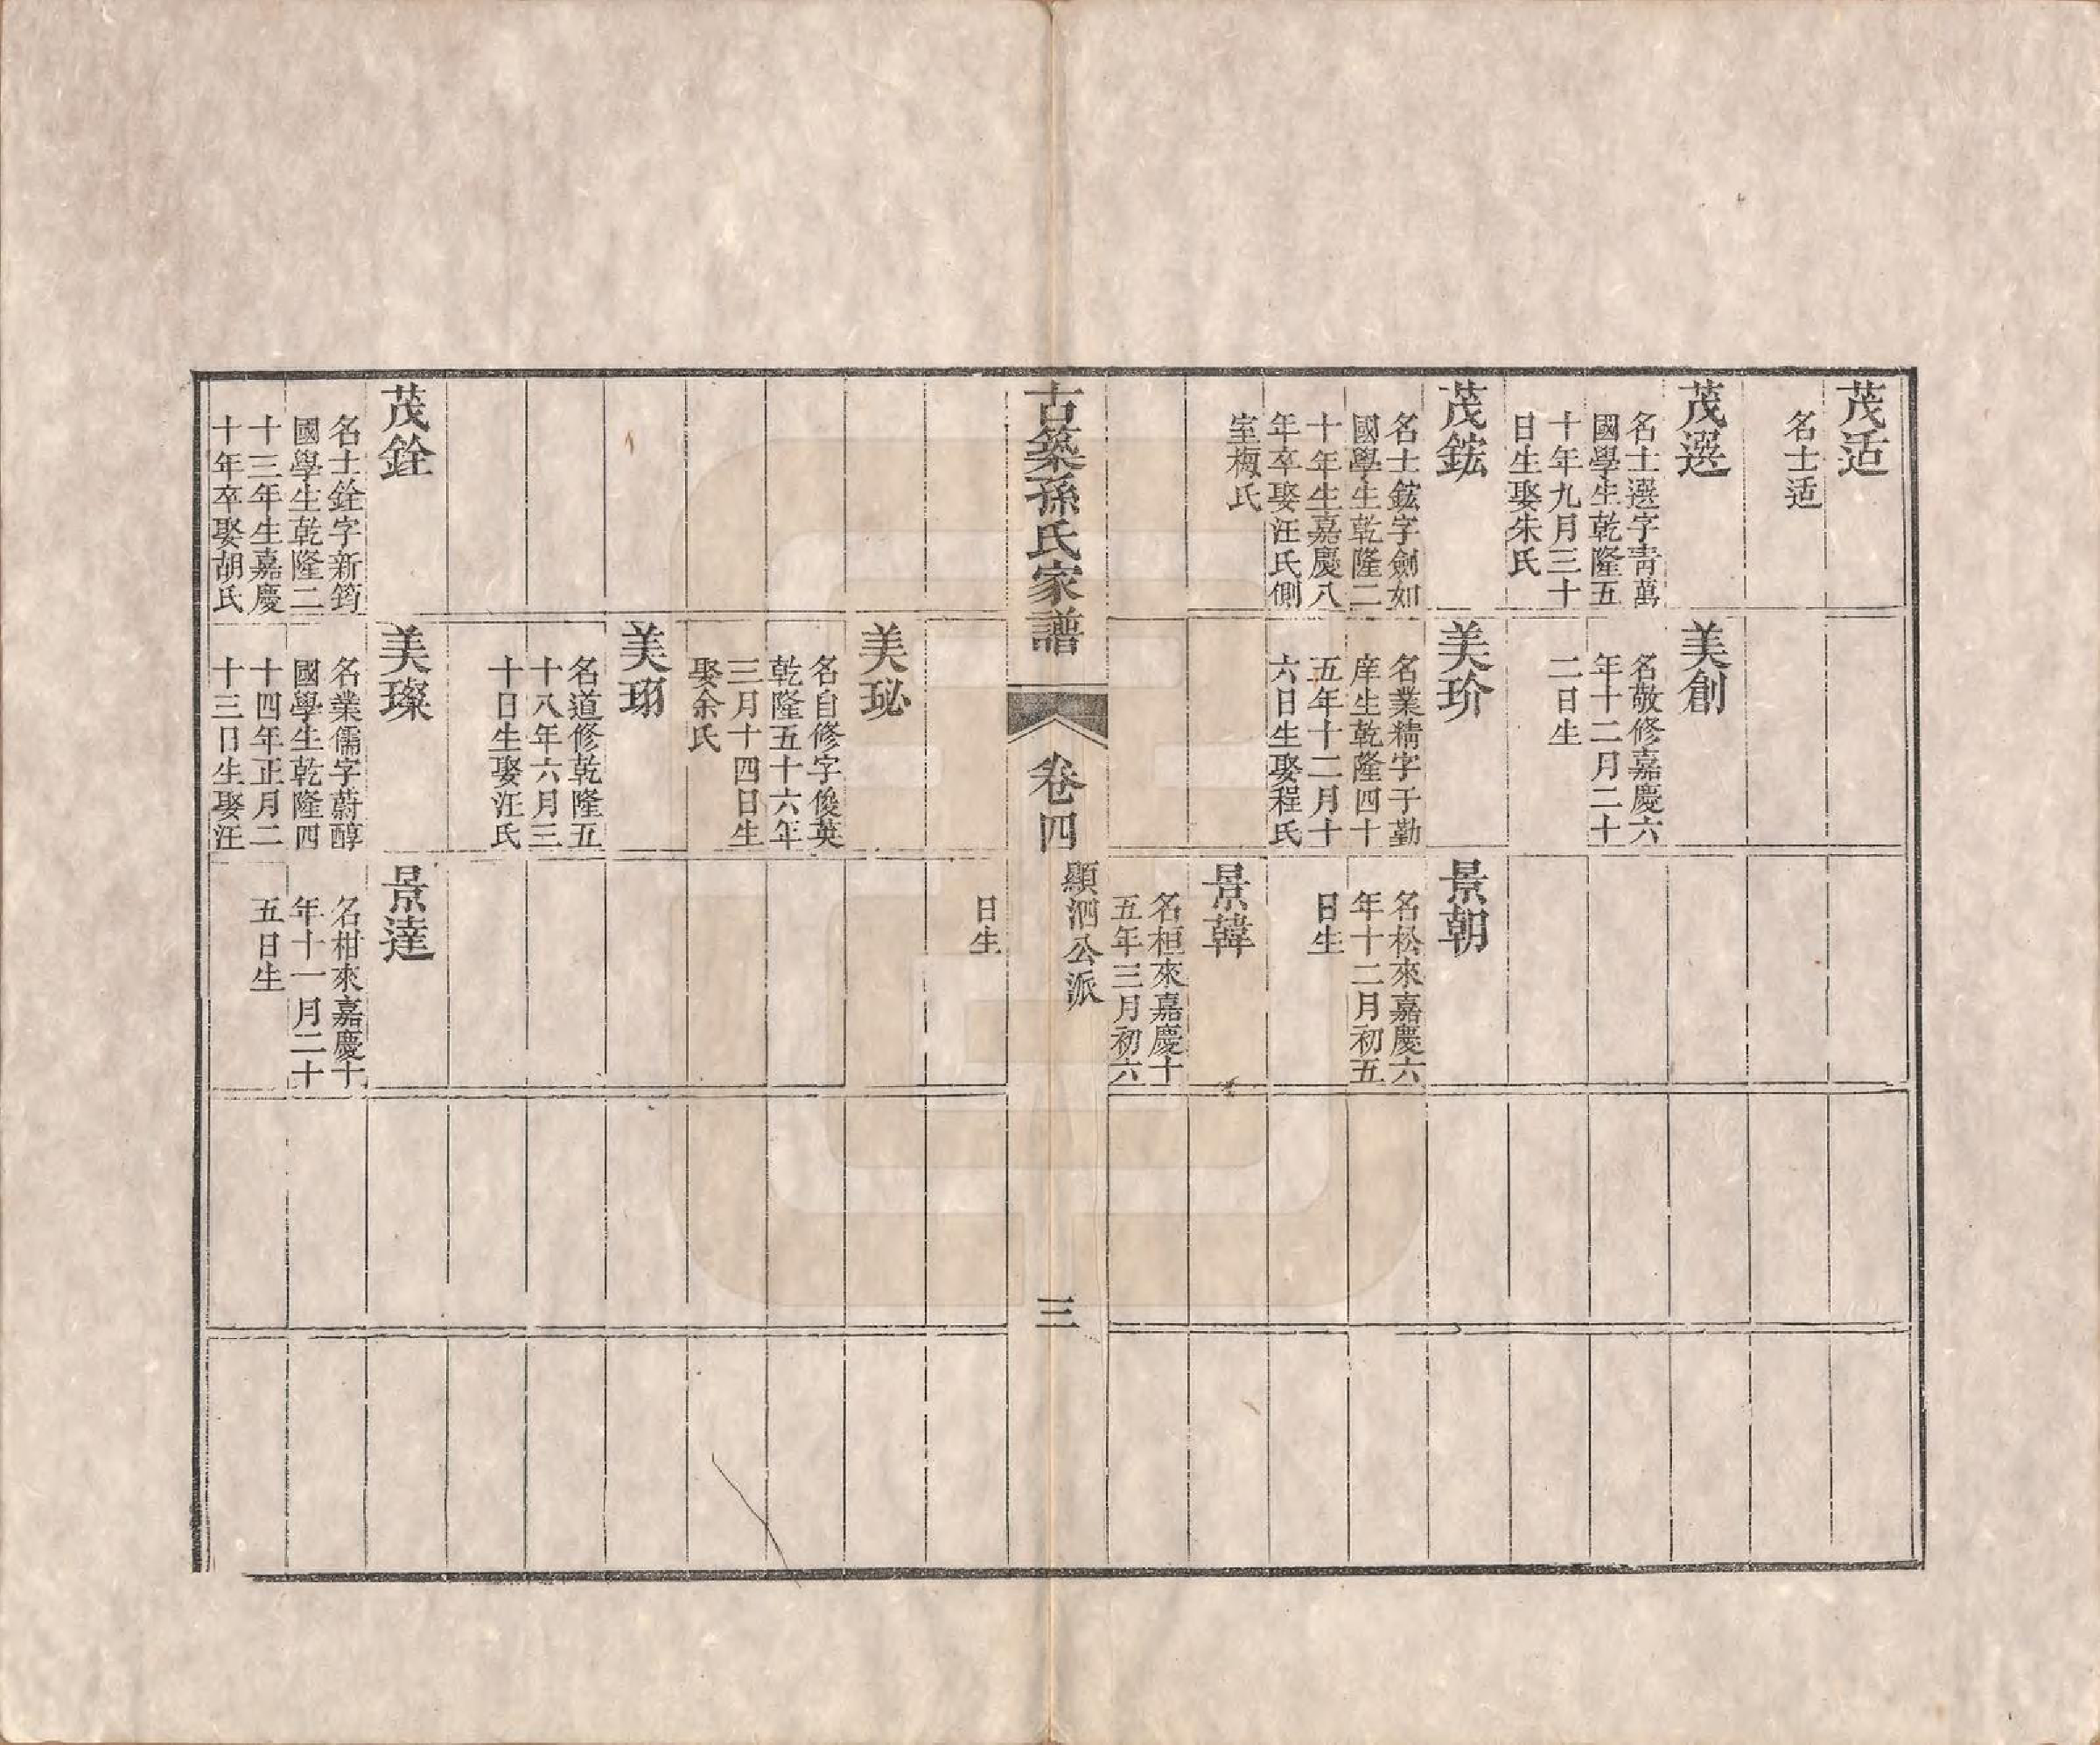 茂适
名士适
茂選
名士選字靑萬
國學生乾隆五
十年九月三十
日生娶朱氏
茂鋐
名士鋐字劍如
國學生乾隆二
十年生嘉慶八
年卒娶汪氏側
室梅氏
美創
名敬修嘉慶六
年十二月二十
二日生
美玠
名業精字子勤
庠生乾隆四十
五年十二月十
六日生娶程氏
景朝
名松來嘉慶六
年十二月初五
日生
景韓
名桓來嘉慶十
五年三月初六
古築孫氏家譜
卷四
顯泗公派
三
日生
美珌
名自修字俊英
乾隆五十六年
三月十四日生
娶余氏
美珝
名道修乾隆五
十八年六月三
十日生娶汪氏
茂銓
名士銓字新筠
國學生乾隆二
十三年生嘉慶
十年卒娶胡氏
美璨
名業儒字蔚醇
國學生乾隆四
十四年正月二
十三日生娶汪
景達
名柑來嘉慶十
年十一月二十
五日生